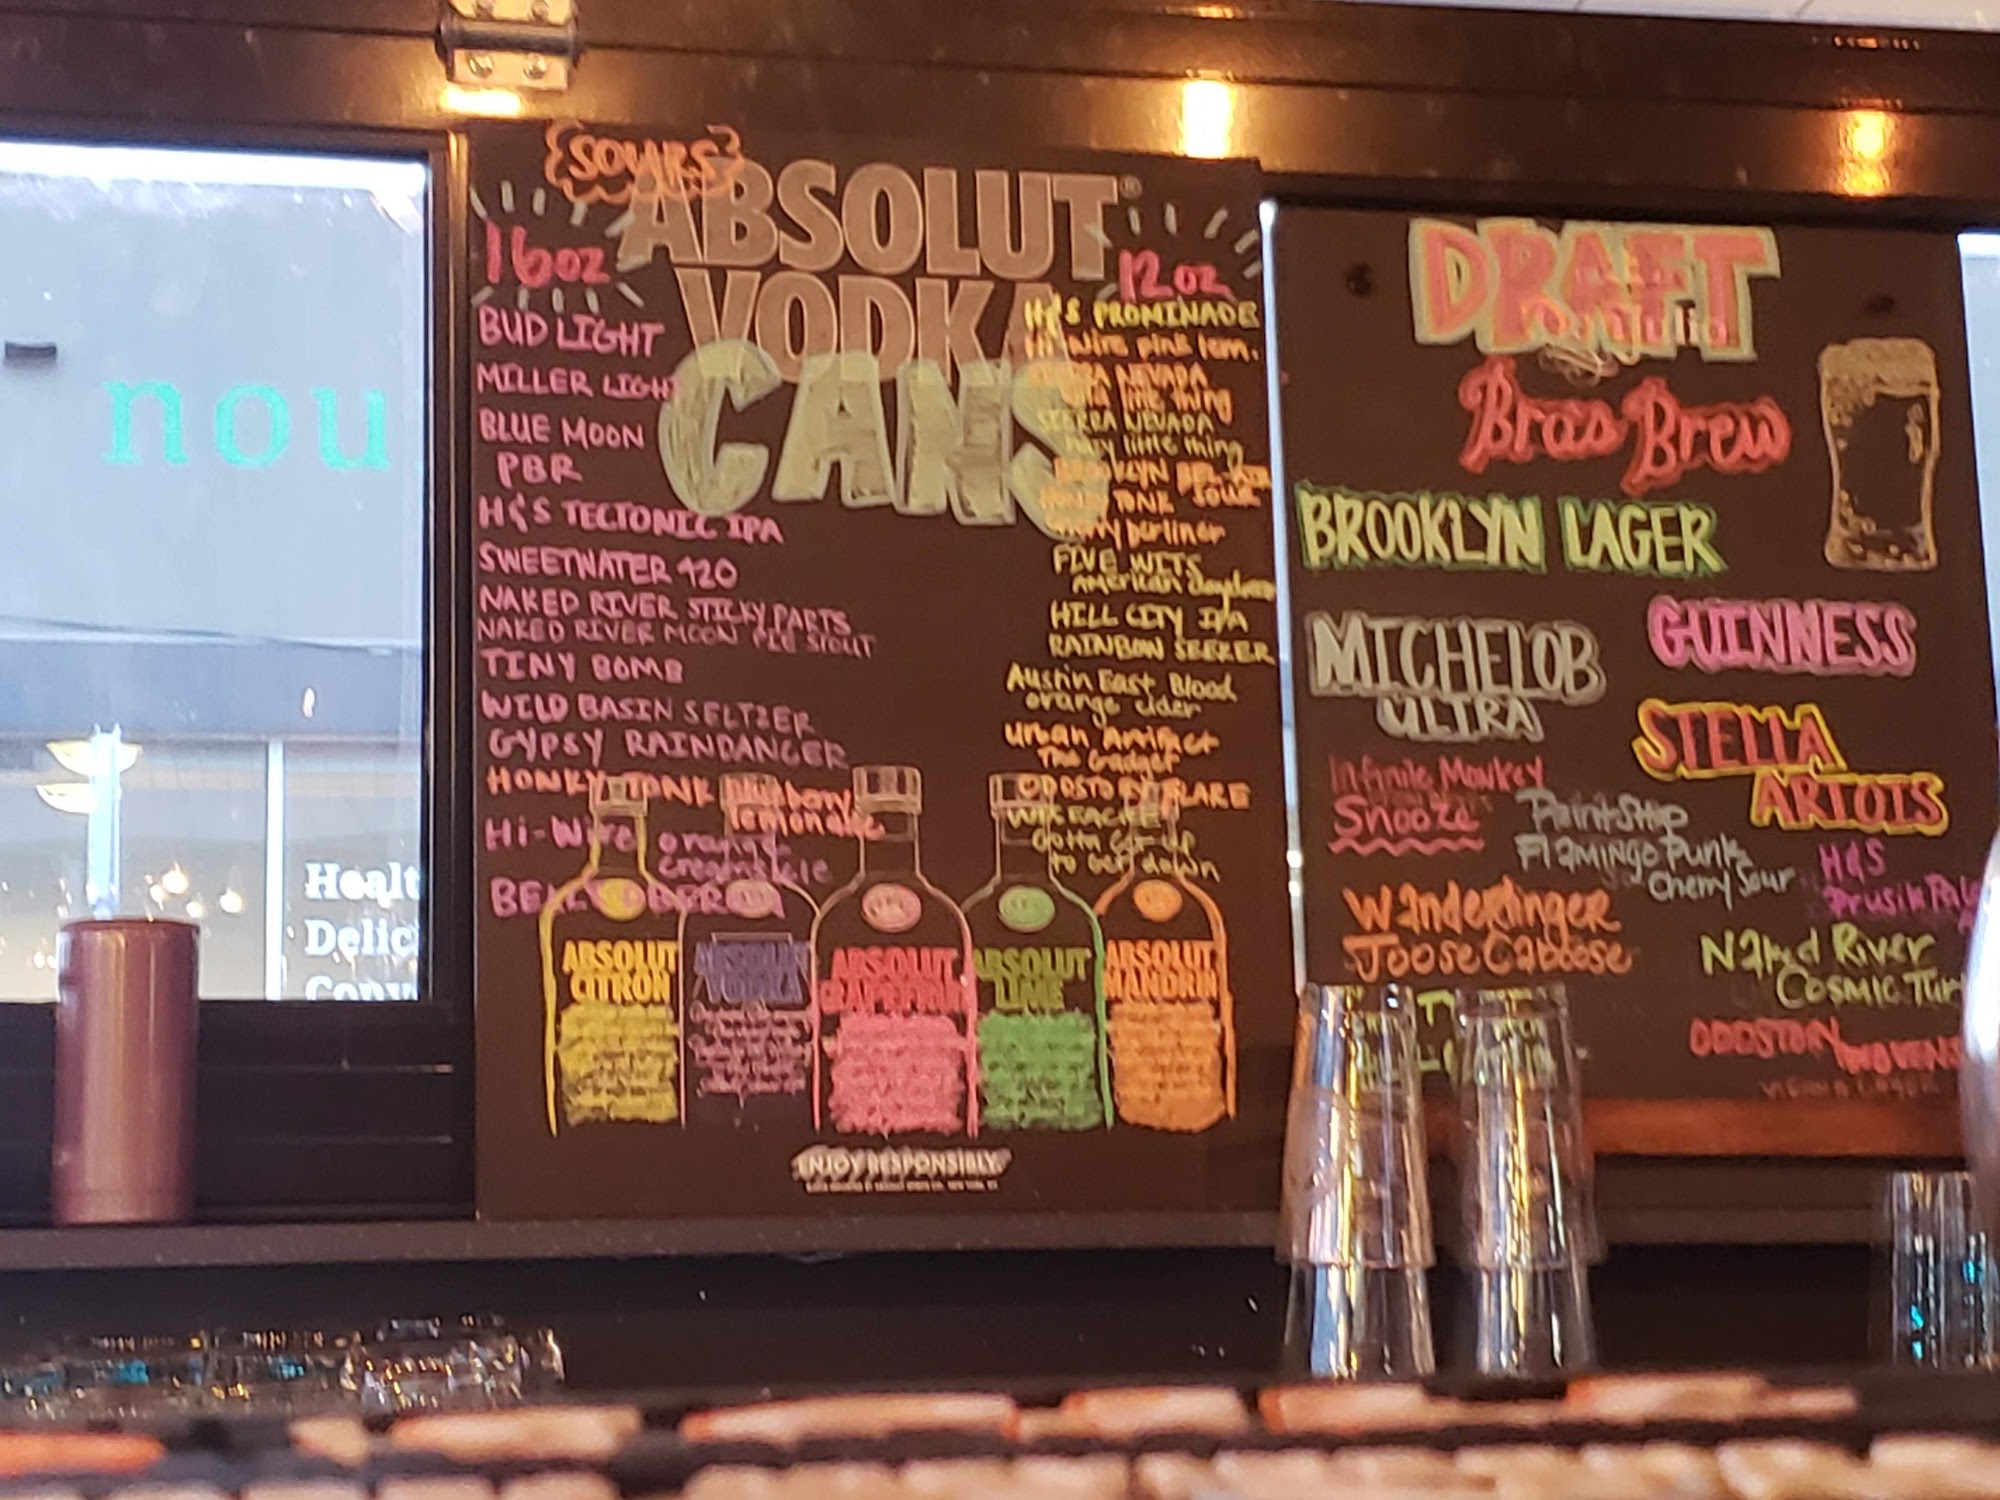 nou
Healt
Delic
Conv
SOURS
ABSOLUT®
VODKA
CANS
16oz
BUD LIGHT
MILLER LIGHT
BLUE MOON
PBR
H&S TECTONIC IPA
SWEETWATER 420
NAKED RIVER STICKY PARTS
NAKED RIVER MOON PIE STOUT
TINY BOMB
WILD BASIN SELTZER
GYPSY RAINDANCER
HONKY TONK
lemonade
Hi-Wire orange
creamsicle
12oz
H&S PROMINADE
Hi-Wire pink lem.
NEVADA
little thing
SIERRA NEVADA
hazy little thing
BROOKLYN BEL AIR
SOUR
TONK
berliner
FIVE WITS
American daydream
HILL CITY IPA
RAINBOW SEEKER
Austin East Blood
orange cider
Urban Artifact
The Gadget
ODDSTORY FLARE
Gotta Get up
to Get down
ABSOLUT
CITRON
ABSOLUT
VODKA
ABSOLUT
GRAPEFRUIT
ABSOLUT
LIME
ABSOLUT
MANDRIN
ENJOY RESPONSIBLY.
DRAFT
Bras Brew
BROOKLYN LAGER
MICHELOB
ULTRA
GUINNESS
STELLA
ARTOIS
Infinite Monkey
Snooze
Paint Ship
Flamingo Punk
Cherry Sour
H&S
Prusik Pale
Wanderlinger
Joose Caboose
Naked River
Cosmic Tur
ODDSTORY WOVENS
VIENNA LAGER